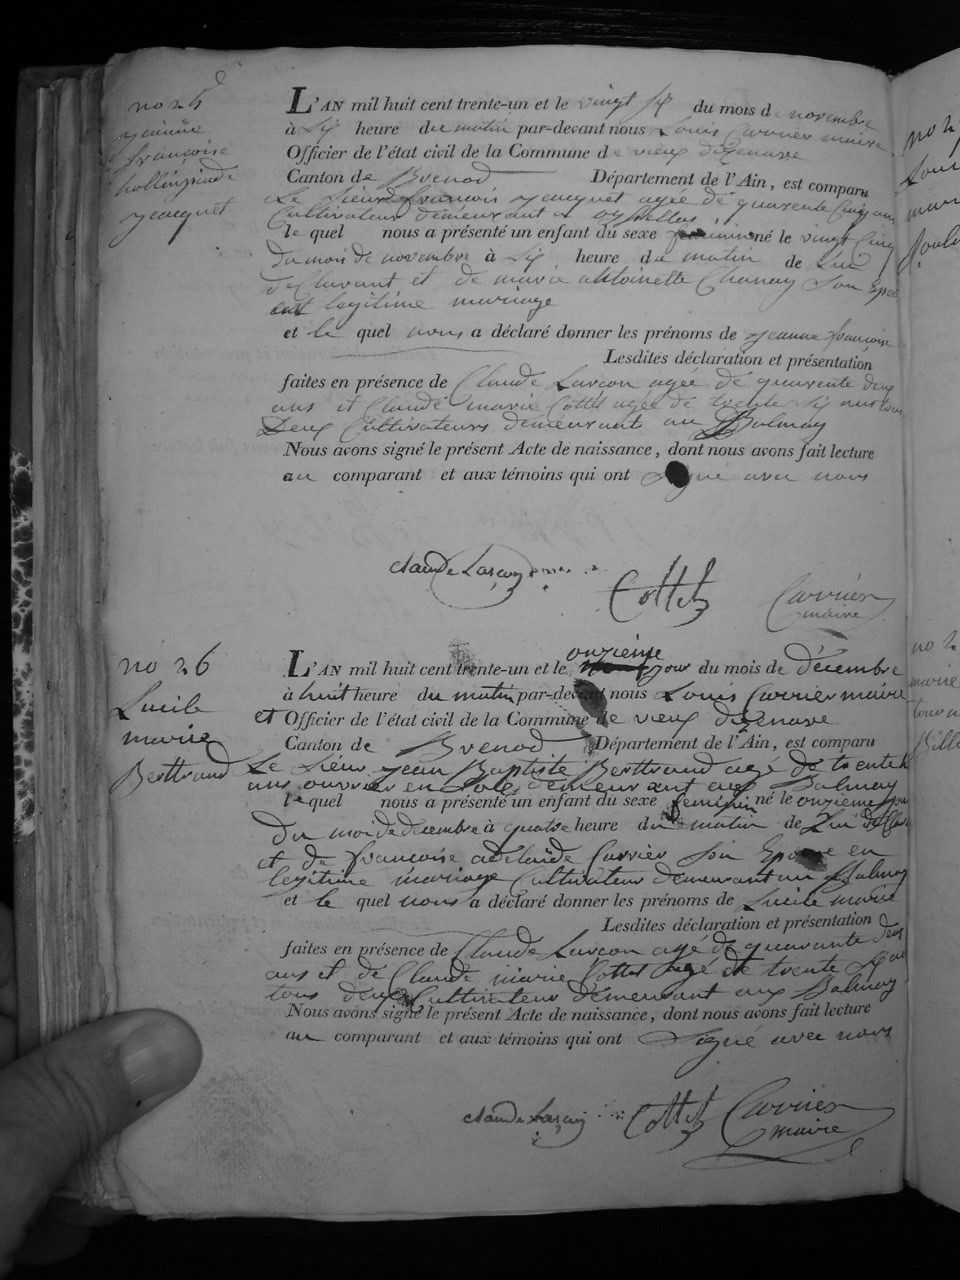 no 25
jeannne
francoise
jacquet
L'AN mil huit cent trente-un et le vingt six du mois de novembre
à six heure du matin par-devant nous Louis Carrier maire
Officier de l'état civil de la Commune de vieux digenave
Canton de Brenod Département de l'Ain, est comparu
Le Sieur francois jacquet agée de quarente cinq ans
Cultivateur demeurant a
le quel nous a présenté un enfant du sexe feminin né le vingt Cinq
du mois de novembre à six heure du matin de Lui
declarant et de marie antoinette Chanay Son Epouse
legitime mariage
et le quel nous a déclaré donner les prénoms de jeanne francoise
Lesdites déclaration et présentation
faites en présence de Claude Larcon agée de quarente deux
ans et Claude marie Cottet agée de trente six ans tous
Deux Cultivateurs demeurant au Balmay
Nous avons signé le présent Acte de naissance, dont nous avons fait lecture
au comparant et aux témoins qui ont Signé avec nous
claude Larçon
Cottet
Carrier
maire
no 26
Lucile
marie
Berttrand
onzieme
L'AN mil huit cent trente-un et le jour du mois de décembre
à huit heure du matin par-devant nous Louis Carrier maire
et Officier de l'état civil de la Commune de vieux digenave
Canton de Brenod Département de l'Ain, est comparu
Le Sieur jean Baptiste Berttrand agé de trente
ans ouvrier en Soie demeurant aux Balmay
le quel nous a présenté un enfant du sexe feminin né le onzieme jour
Du moi de decembre à quatre heure du matin de Lui
et de francoise adelaide Carrier Son Epouse en
legitime mariage Cultivateur demeurant au Balmay
et le quel nous a déclaré donner les prénoms de Lucile marie
Lesdites déclaration et présentation
faites en présence de Claude Larcon agé de quarante deux
ans et de Claude marie Cottet agé de trente six ans
tous deux Cultivateur demeurant aux Balmay
Nous avons signé le présent Acte de naissance, dont nous avons fait lecture
au comparant et aux témoins qui ont Signé avec nous
claude Larçon
Cottet
Carrier
maire